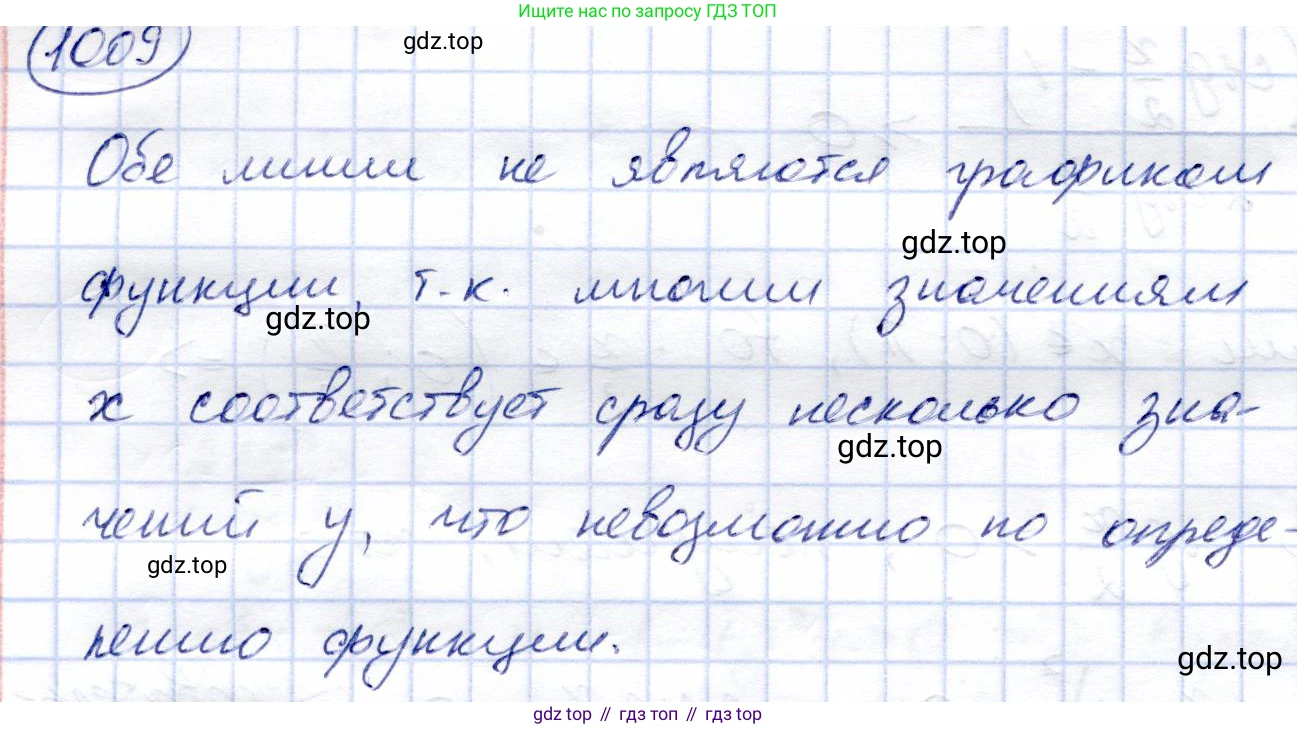 Ищите нас по запросу ГДЗ ТОП
1009
gdz.top
Обе линии не являются графиком
gdz.top
функции, т.к. многим значениям
gdz.top
x соответствует сразу несколько зна-
gdz.top
чений y, что невозможно по опреде-
gdz.top
лению функции.
gdz.top
gdz top // гдз топ // гдз top